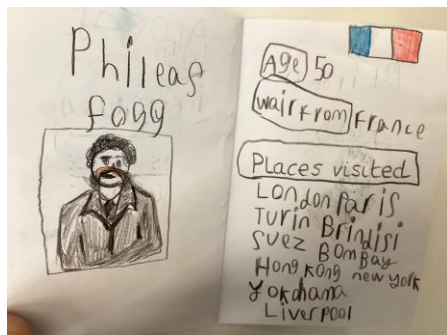 Phileas
fogg
Age 50
wair from France
Places visited
London Paris
Turin Brindisi
Suez Bombay
Hong Kong new york
Yokohama
Liverpool